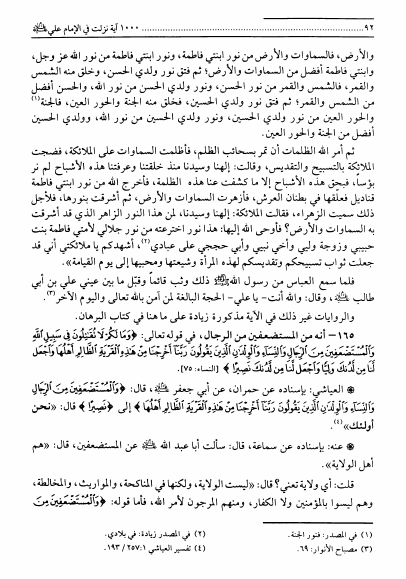 ٩٢ .......... ١٠٠٠ آية نزلت في الإمام علي ﷺ
والأرض، فالسماوات والأرض من نور ابنتي فاطمة، ونور ابنتي فاطمة من نور الله عز وجل،
وابنتي فاطمة أفضل من السماوات والأرض؛ ثم فتق نور ولدي الحسن، وخلق منه الشمس
والقمر، فالشمس والقمر من نور الحسن، ونور ولدي الحسن من نور الله، والحسن أفضل
من الشمس والقمر؛ ثم فتق نور ولدي الحسين، فخلق منه الجنة والحور العين، فالجنة(١)
والحور العين من نور ولدي الحسين، ونور ولدي الحسين من نور الله، وولدي الحسين
أفضل من الجنة والحور العين.
ثم أمر الله الظلمات أن تمر بسحائب الظلم، فأظلمت السماوات على الملائكة، فضجت
الملائكة بالتسبيح والتقديس، وقالت: إلهنا وسيدنا منذ خلقتنا وعرفتنا هذه الأشباح لم نر
بؤساً، فبحق هذه الأشباح إلا ما كشفت عنا هذه الظلمة، فأخرج الله من نور ابنتي فاطمة
قناديل فعلقها في بطنان العرش، فأزهرت السماوات والأرض، ثم أشرقت بنورها، فلأجل
ذلك سميت الزهراء، فقالت الملائكة: إلهنا وسيدنا، لمن هذا النور الزاهر الذي قد أشرقت
به السماوات والأرض؟ فأوحى الله إليها: هذا نور اخترعته من نور جلالي لأمتي فاطمة بنت
حبيبي وزوجة وليي وأخي نبيي وأبي حججي على عبادي(٢)، أشهدكم يا ملائكتي أني قد
جعلت ثواب تسبيحكم وتقديسكم لهذه المرأة وشيعتها ومحبيها إلى يوم القيامة».
فلما سمع العباس من رسول الله ﷺ ذلك وثب قائماً وقبّل ما بين عيني علي بن أبي
طالب ﷺ، وقال: والله أنت- يا علي- الحجة البالغة لمن آمن بالله تعالى واليوم الآخر(٣).
والروايات غير ذلك في الآية مذكورة زيادة على ما هنا في كتاب البرهان.
١٦٥- أنه من المستضعفين من الرجال، في قوله تعالى: ﴿وَمَا لَكُمْ لَا تُقَاتِلُونَ فِي سَبِيلِ اللَّهِ
وَالْمُسْتَضْعَفِينَ مِنَ الرِّجَالِ وَالنِّسَاءِ وَالْوِلْدَانِ الَّذِينَ يَقُولُونَ رَبَّنَا أَخْرِجْنَا مِنْ هَذِهِ الْقَرْيَةِ الظَّالِمِ أَهْلُهَا وَاجْعَلْ
لَنَا مِنْ لَدُنْكَ وَلِيًّا وَاجْعَلْ لَنَا مِنْ لَدُنْكَ نَصِيرًا﴾ (النساء: ٧٥).
العياشي: بإسناده عن حمران، عن أبي جعفر ﷺ، قال: ﴿وَالْمُسْتَضْعَفِينَ مِنَ الرِّجَالِ
وَالنِّسَاءِ وَالْوِلْدَانِ الَّذِينَ يَقُولُونَ رَبَّنَا أَخْرِجْنَا مِنْ هَذِهِ الْقَرْيَةِ الظَّالِمِ أَهْلُهَا﴾ إلى ﴿نَصِيرًا﴾ قال: «نحن
أولئك»(٤).
عنه: بإسناده عن سماعة، قال: سألت أبا عبد الله ﷺ عن المستضعفين، قال: «هم
أهل الولاية».
قلت: أي ولاية تعني؟ قال: «ليست الولاية، ولكنها في المناكحة، والمواريث، والمخالطة،
وهم ليسوا بالمؤمنين ولا الكفار، ومنهم المرجون لأمر الله، فأما قوله: ﴿وَالْمُسْتَضْعَفِينَ مِنَ
(١) في المصدر: فنور الجنة.
(٢) في المصدر زيادة: في بلادي.
(٣) مصباح الأنوار: ٦٩.
(٤) تفسير العياشي ١: ٢٥٧/ ١٩٣.